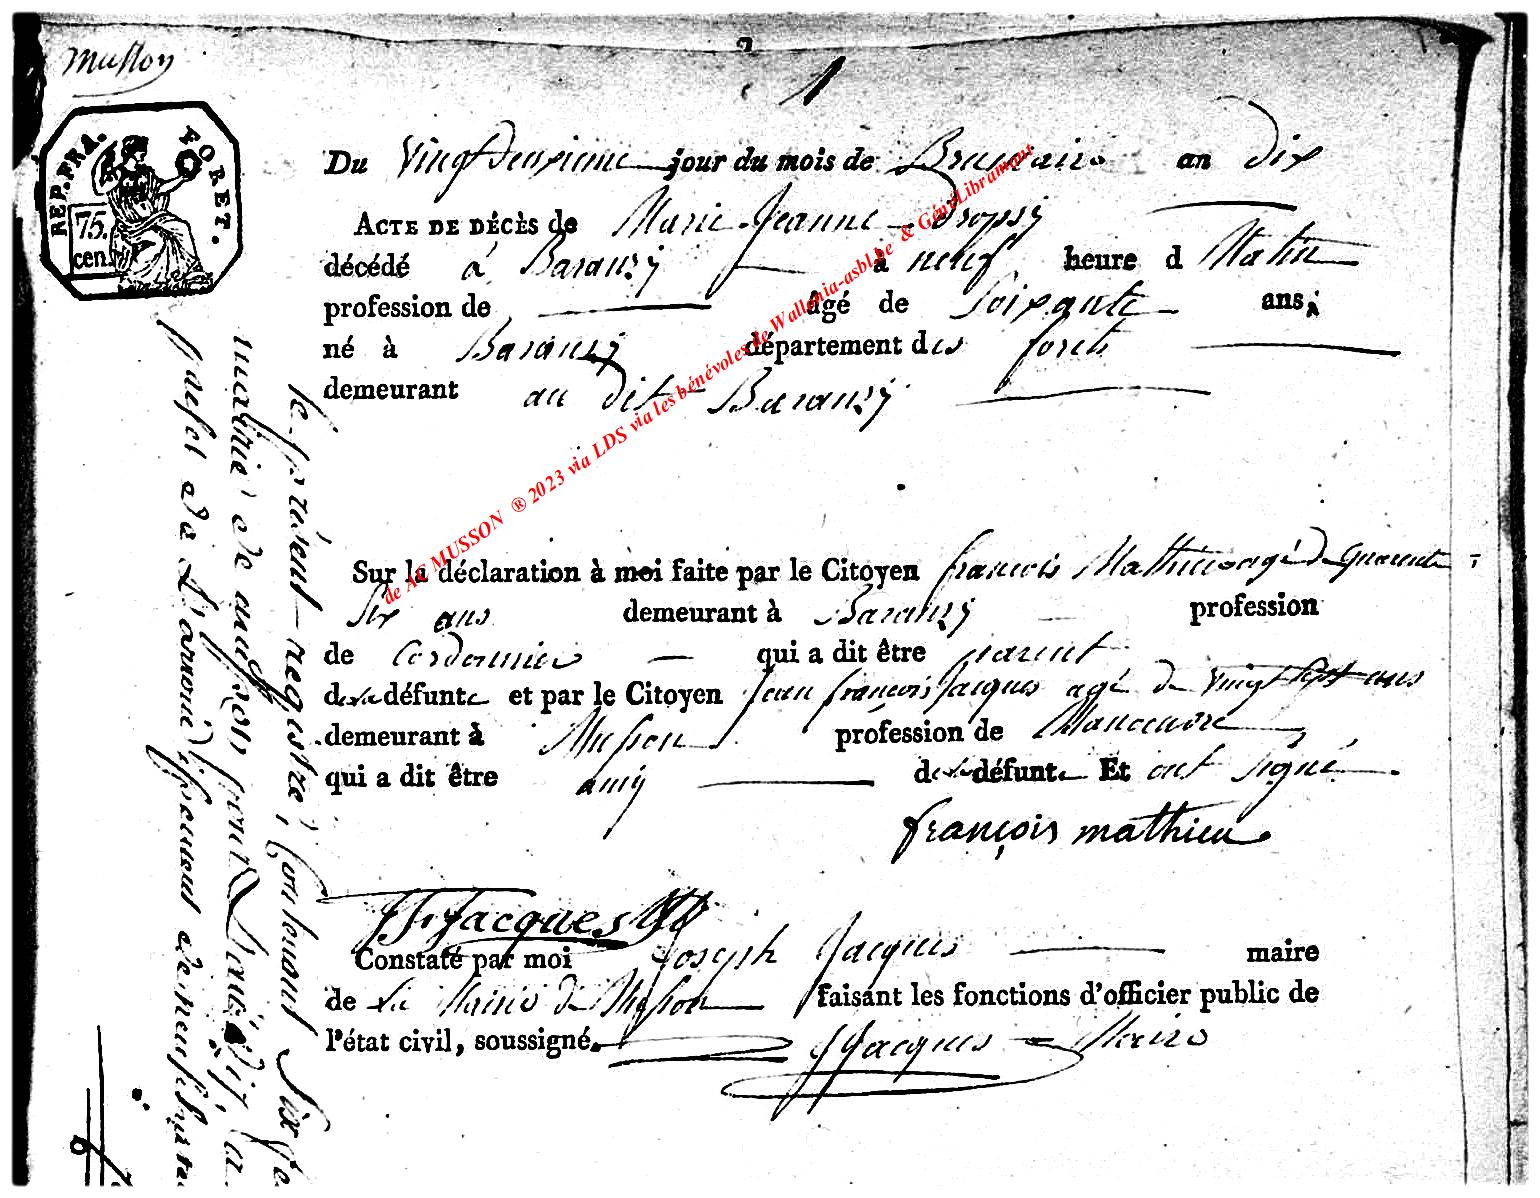 Musson
1
REP. FRA. FORET.
75.
cen.
Du Vingt Deuxieme jour du mois de Brumaire an Dix
ACTE DE DÉCÈS de Marie Jeanne Dropsy
décédé á Baranzy à neuf heure d Matin
profession de âgé de Soixante ans,
né à Baranzy département des forets
demeurant au dit Baranzy
Sur la déclaration à moi faite par le Citoyen françois Mathieu agé de quarente
Six ans demeurant à Baranzy profession
de Cordonnier qui a dit être parent
de la défunte et par le Citoyen Jean françois Jacques agé de vingt sept ans
demeurant à Musson profession de Manoeuvre
qui a dit être amy de la défunte Et ont signé
françois mathieu
J F Jacques
Constaté par moi Joseph Jacques maire
de La Mairie de Musson faisant les fonctions d'officier public de
l'état civil, soussigné.
J Jacques Maire
de AC MUSSON ® 2023 via LDS via les bénévoles de Wallonia-asbl.be & GénéLibramont
le présent registre, Contenant Six
de par Nous
de L'arrondissement de neufchatea